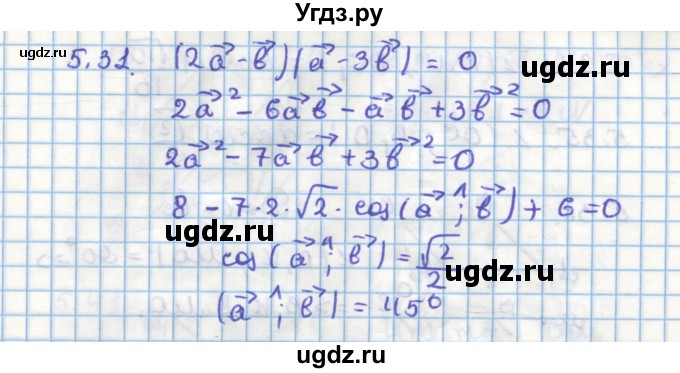 Угдз.ру
ugdz.ru ugdz.ru
5.31. (2a⃗ - b⃗)(a⃗ - 3b⃗) = 0
ugdz.ru
2a⃗² - 6a⃗b⃗ - a⃗b⃗ + 3b⃗² = 0
2a⃗² - 7a⃗b⃗ + 3b⃗² = 0
8 - 7·2·√2·cos(a⃗ ^; b⃗) + 6 = 0
ugdz.ru
cos(a⃗ ^; b⃗) = √2/2
ugdz.ru
(a⃗ ^; b⃗) = 45⁰
ugdz.ru